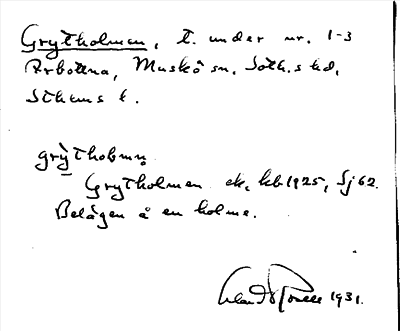 Grytholmen, t. under nr. 1-3
Arbottna, Muskö sn, Soth.s hd,
Sthlms l.
grỳthoḷmṇ
Grytholmen ek, hb 1925, Sj 62.
Belägen å en holme.
1931.